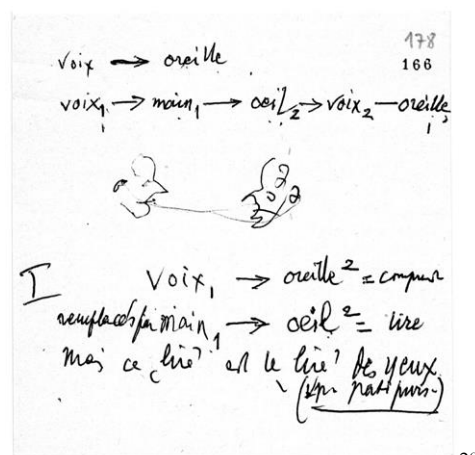 178
166
voix → oreille
voix₁ → main₁ → oeil₂ → voix₂ — oreille₁
I
Voix₁ → oreille² =
remplacés par main₁ → oeil² = lire
mais ce "lire" est le lire des yeux